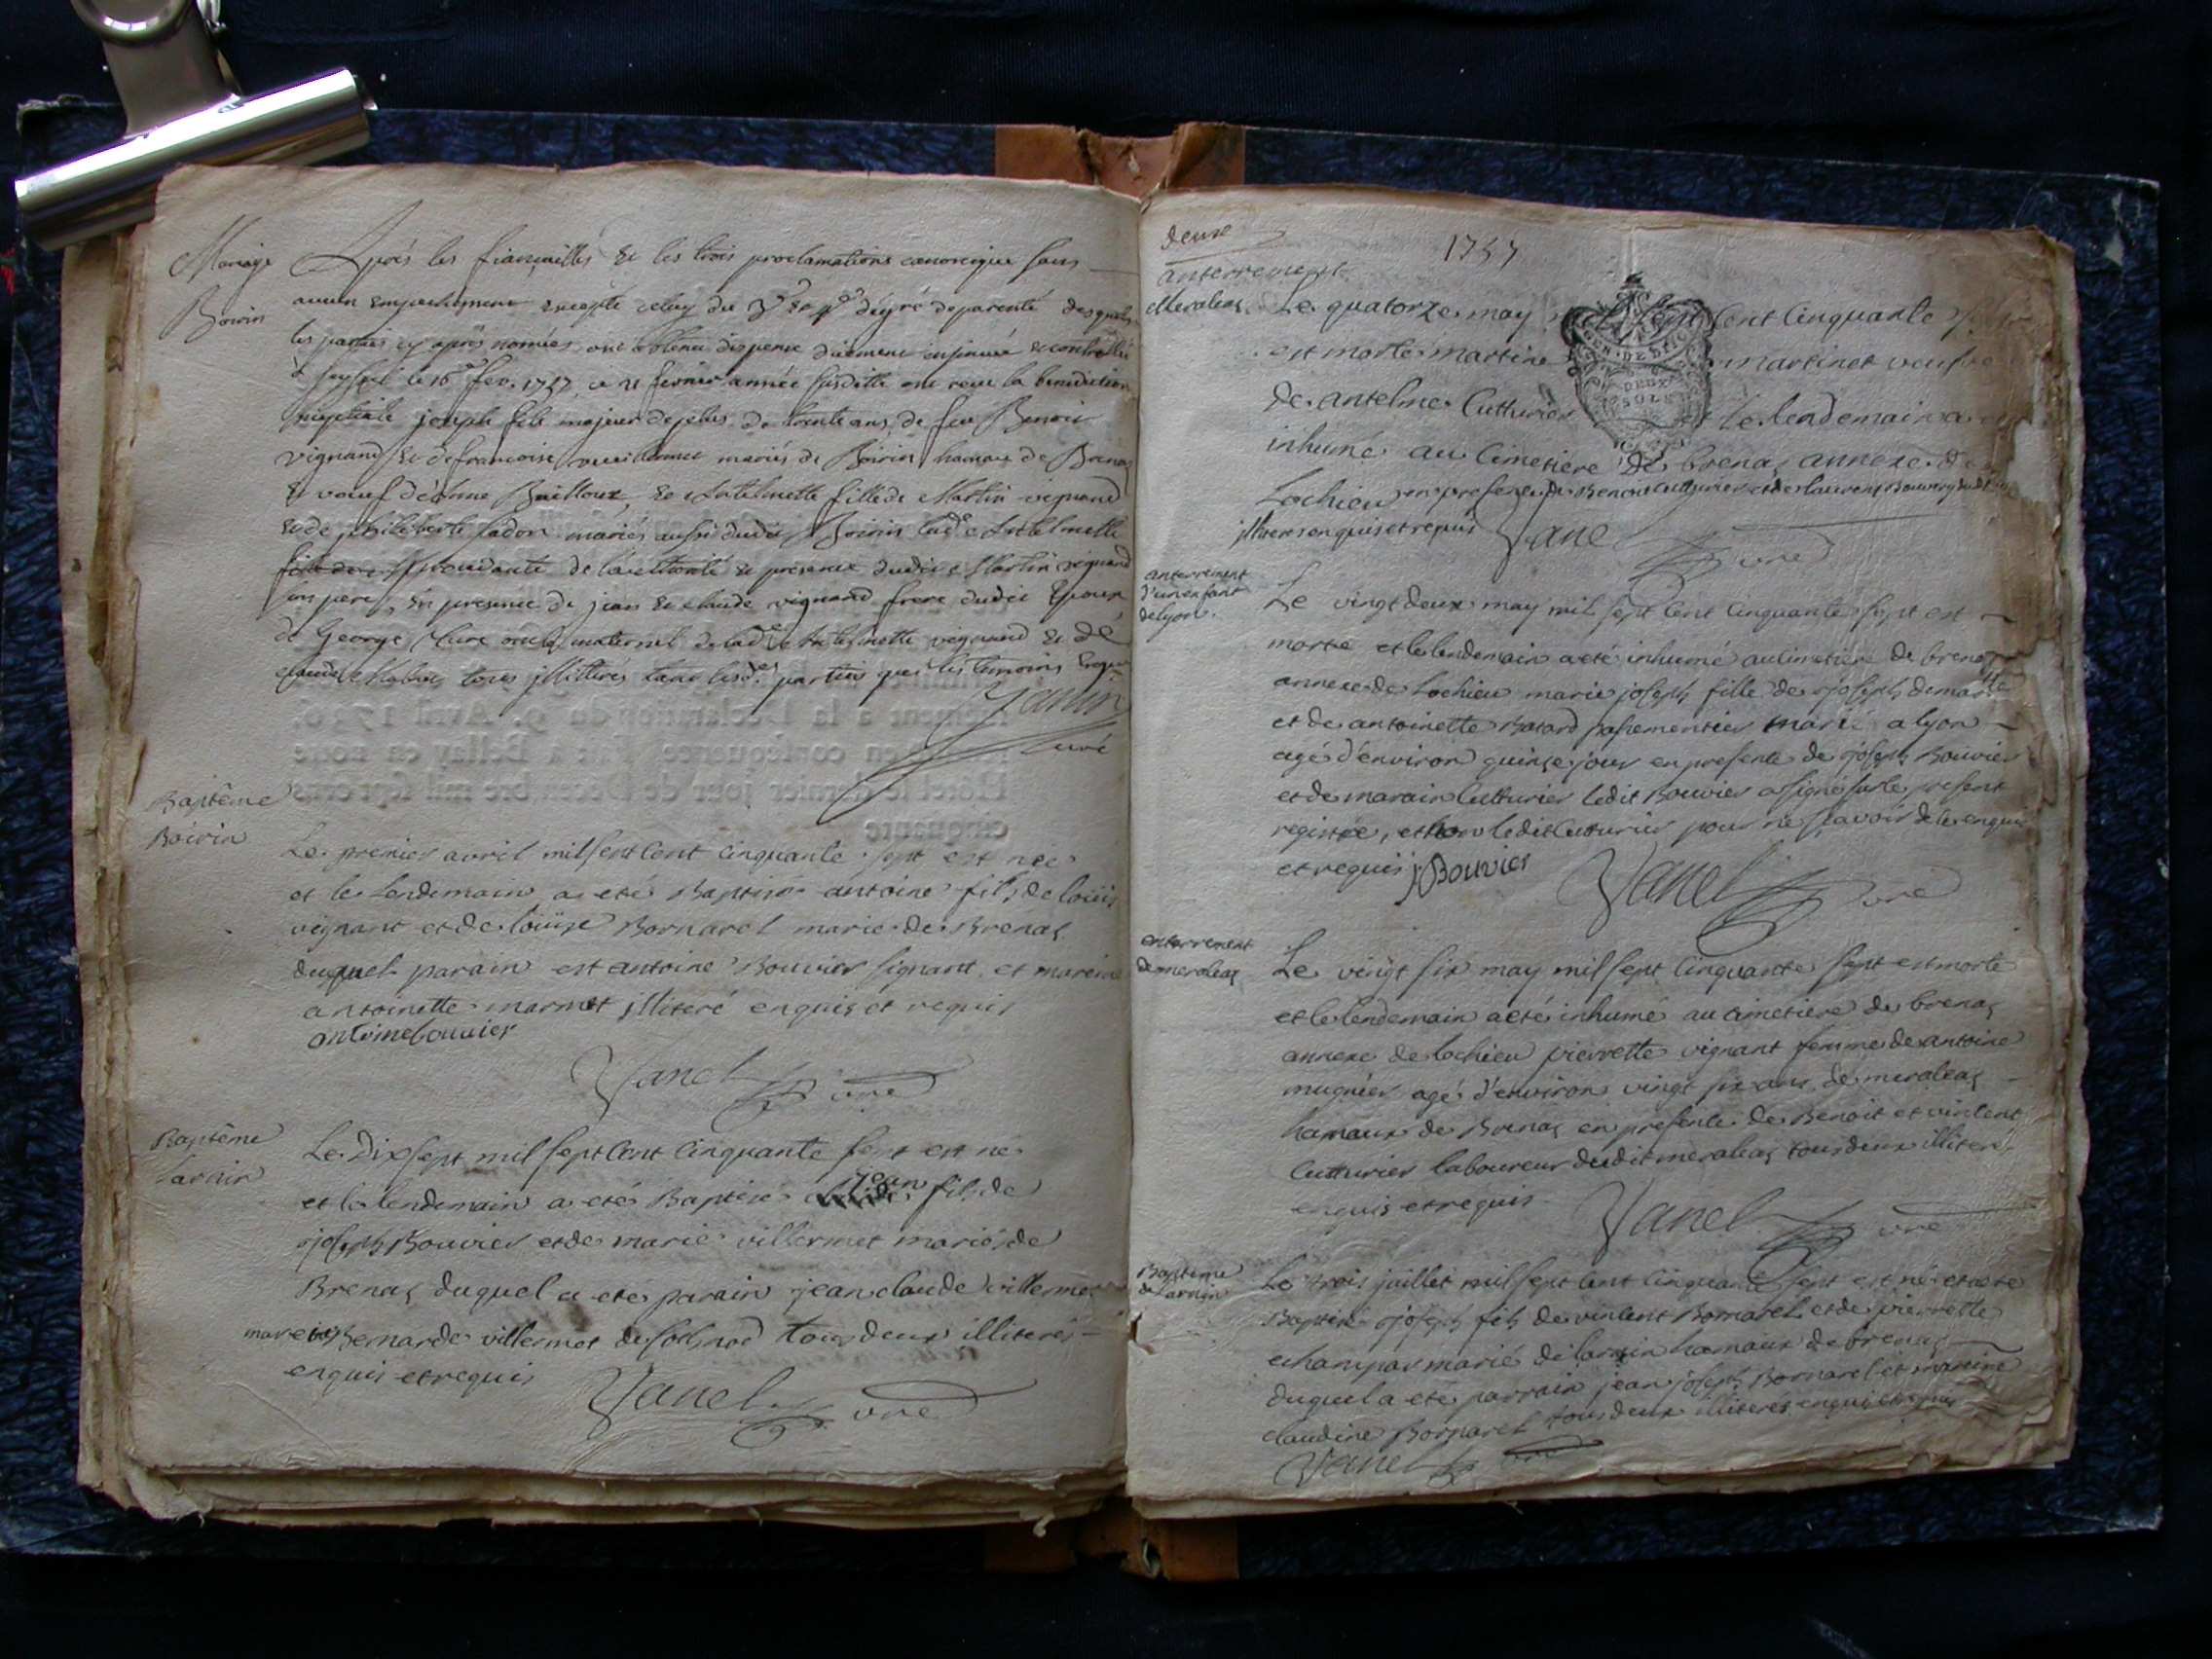 Mariage
Boirin
Après les fiançailles & les trois proclamations canonique sans
aucun empechement excepté celuy du 3e au 4e degré de parenté desquels
les parties cy après nomées ont obtenu dispense duement insinuée & controllée
à Seyssel le 16e fev. 1757, ce 21 fevrier année susditte ont reçu la benediction
nuptiale joseph fils majeur de plus de trente ans de feu Benoit
vignand & de francoise vuillermet mariés de Boirin hameau de Brenas
& voeuf d'éthme Bailloux, & Antelmette fille de Martin vignand
& de philiberte ladon mariés aussi dudit Boirin lade Antelmette
fille de procedante de l'authorité & présence dudit Martin vignand
son pere, en presence de jean & claude vignand frere dudit Epoux
de George Cure oncle maternel de lade Antelmette vignand & de
claude tous jllitterés tant lesdes parties que les temoins
Janin
Curé
Baptême
Boirin
Le premier avril mil sept cent cinquante sept est née
et le Lendemain a eté Baptisé antoine fils de loüis
vignant et de loüise Bornarel marie de Brenas
duquel parain est antoine Bouvier signant et mareine
antoinette marmet jlliteré enquis et requis
antoine bouuier
Vanel curé
Baptême
Larain
Le Dix sept mil sept cent cinquante sept est né
et le lendemain a eté Baptisé jean fils de
joseph Bouvier et de marie villermet mariés de
Brenas duquel a eté parain jean claude villermet
mareine Bernarde villermet de tous deux illiterés
enquis et requis
Vanel curé
deuxe
1757
anterrement
Meraleas
Le quatorze may sept cent cinquante
est morte martine martinet veufve
de antelme Cutturier le lendemain a
inhumé au Cimetiere de brenas annexe de
Lochieu en presence de Benoit cutturier et de laurent Bouvier
jlliteres enquis et requis Vanel curé
anterrement
d'un enfant
de lyon.
Le vingt deux may mil sept cent cinquante sept est
morte et le lendemain a eté inhumé au cimetiere de brenas
annexe de Lochieu marie joseph fille de joseph demar
et de antoinette Batard passementier marié a lyon
agé d'environ quinze jour en presente de joseph Bouvier
et de marain Cutturier ledit Bouvier a signé sur le present
registre, et non ledit Cutturier pour ne sçavoir de ce enquis
et requis j Bouvier Vanel curé
enterrement
de meraleas
Le vingt six may mil sept cinquante sept est morte
et le lendemain a eté inhumé au cimetiere de brenas
annexe de lochieu pierrette vignant femme de antoine
mugnier agé d'environ vingt six ans de meraleas
hamaux de Brenas en presente de Benoit et vincent
Cutturier laboureur dudit meraleas tous deux illiteré
enquis et requis
Vanel curé
Bapteme
de Larain
Le trois juillet mil sept cent cinquante sept est né et a eté
Baptisé joseph fils de vincent Bornarel et de pierrette
champar marié de larain hamaux de brenas
duquel a eté parrain jean joseph Bornarel et mareine
claudine Bornarel tous deux illiterés enquis et requis
Vanel curé